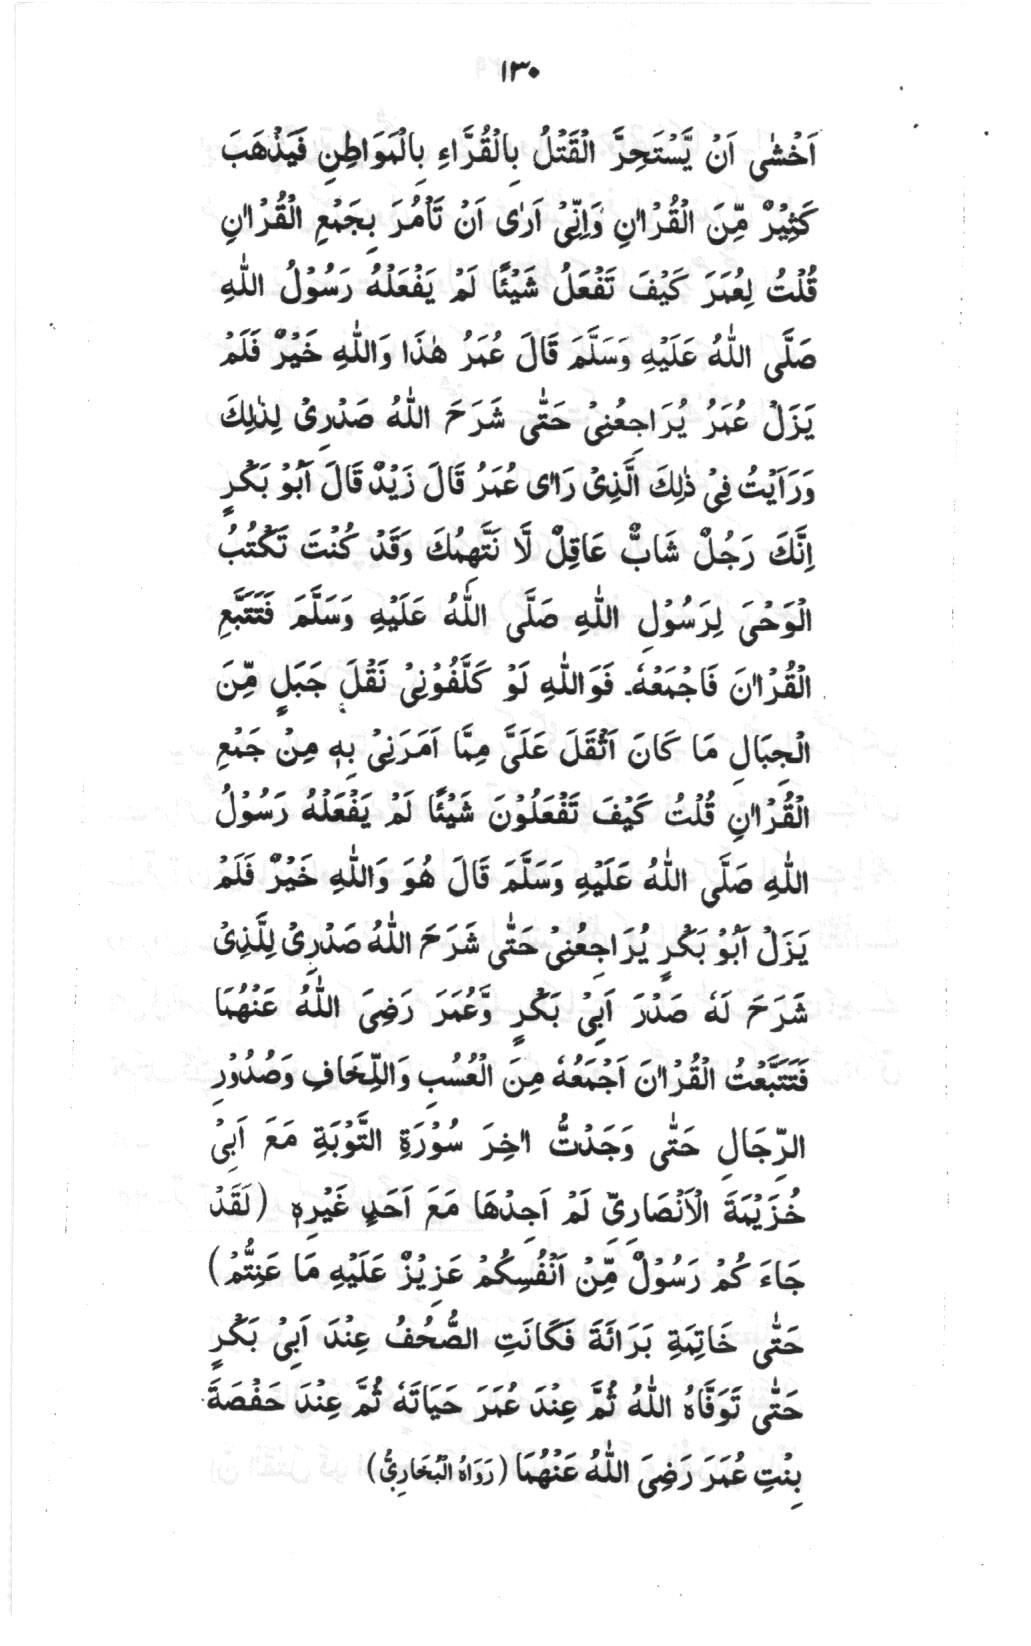 ۱۳۰
اَخْشٰى اَنْ يَّسْتَحِرَّ الْقَتْلُ بِالْقُرَّاءِ بِالْمَوَاطِنِ فَيَذْهَبَ
كَثِيْرٌ مِّنَ الْقُرْاٰنِ وَاِنِّىْ اَرٰى اَنْ تَاْمُرَ بِجَمْعِ الْقُرْاٰنِ
قُلْتُ لِعُمَرَ كَيْفَ تَفْعَلُ شَيْئًا لَمْ يَفْعَلْهُ رَسُوْلُ اللّٰهِ
صَلَّى اللّٰهُ عَلَيْهِ وَسَلَّمَ قَالَ عُمَرُ هٰذَا وَاللّٰهِ خَيْرٌ فَلَمْ
يَزَلْ عُمَرُ يُرَاجِعُنِىْ حَتّٰى شَرَحَ اللّٰهُ صَدْرِىْ لِذٰلِكَ
وَرَاَيْتُ فِىْ ذٰلِكَ الَّذِىْ رَاٰى عُمَرُ قَالَ زَيْدٌ قَالَ اَبُوْ بَكْرٍ
اِنَّكَ رَجُلٌ شَابٌّ عَاقِلٌ لَّا نَتَّهِمُكَ وَقَدْ كُنْتَ تَكْتُبُ
الْوَحْىَ لِرَسُوْلِ اللّٰهِ صَلَّى اللّٰهُ عَلَيْهِ وَسَلَّمَ فَتَتَبَّعِ
الْقُرْاٰنَ فَاجْمَعْهُ۔ فَوَاللّٰهِ لَوْ كَلَّفُوْنِىْ نَقْلَ جَبَلٍ مِّنَ
الْجِبَالِ مَا كَانَ اَثْقَلَ عَلَىَّ مِمَّا اَمَرَنِىْ بِهٖ مِنْ جَمْعِ
الْقُرْاٰنِ قُلْتُ كَيْفَ تَفْعَلُوْنَ شَيْئًا لَمْ يَفْعَلْهُ رَسُوْلُ
اللّٰهِ صَلَّى اللّٰهُ عَلَيْهِ وَسَلَّمَ قَالَ هُوَ وَاللّٰهِ خَيْرٌ فَلَمْ
يَزَلْ اَبُوْ بَكْرٍ يُرَاجِعُنِىْ حَتّٰى شَرَحَ اللّٰهُ صَدْرِىْ لِلَّذِىْ
شَرَحَ لَهٗ صَدْرَ اَبِىْ بَكْرٍ وَّعُمَرَ رَضِىَ اللّٰهُ عَنْهُمَا
فَتَتَبَّعْتُ الْقُرْاٰنَ اَجْمَعُهٗ مِنَ الْعُسُبِ وَاللِّخَافِ وَصُدُوْرِ
الرِّجَالِ حَتّٰى وَجَدْتُّ اٰخِرَ سُوْرَةِ التَّوْبَةِ مَعَ اَبِىْ
خُزَيْمَةَ الْاَنْصَارِىِّ لَمْ اَجِدْهَا مَعَ اَحَدٍ غَيْرِهٖ (لَقَدْ
جَاءَكُمْ رَسُوْلٌ مِّنْ اَنْفُسِكُمْ عَزِيْزٌ عَلَيْهِ مَا عَنِتُّمْ)
حَتّٰى خَاتِمَةِ بَرَائَةَ فَكَانَتِ الصُّحُفُ عِنْدَ اَبِىْ بَكْرٍ
حَتّٰى تَوَفَّاهُ اللّٰهُ ثُمَّ عِنْدَ عُمَرَ حَيَاتَهٗ ثُمَّ عِنْدَ حَفْصَةَ
بِنْتِ عُمَرَ رَضِىَ اللّٰهُ عَنْهُمَا (رَوَاهُ الْبُخَارِىُّ)